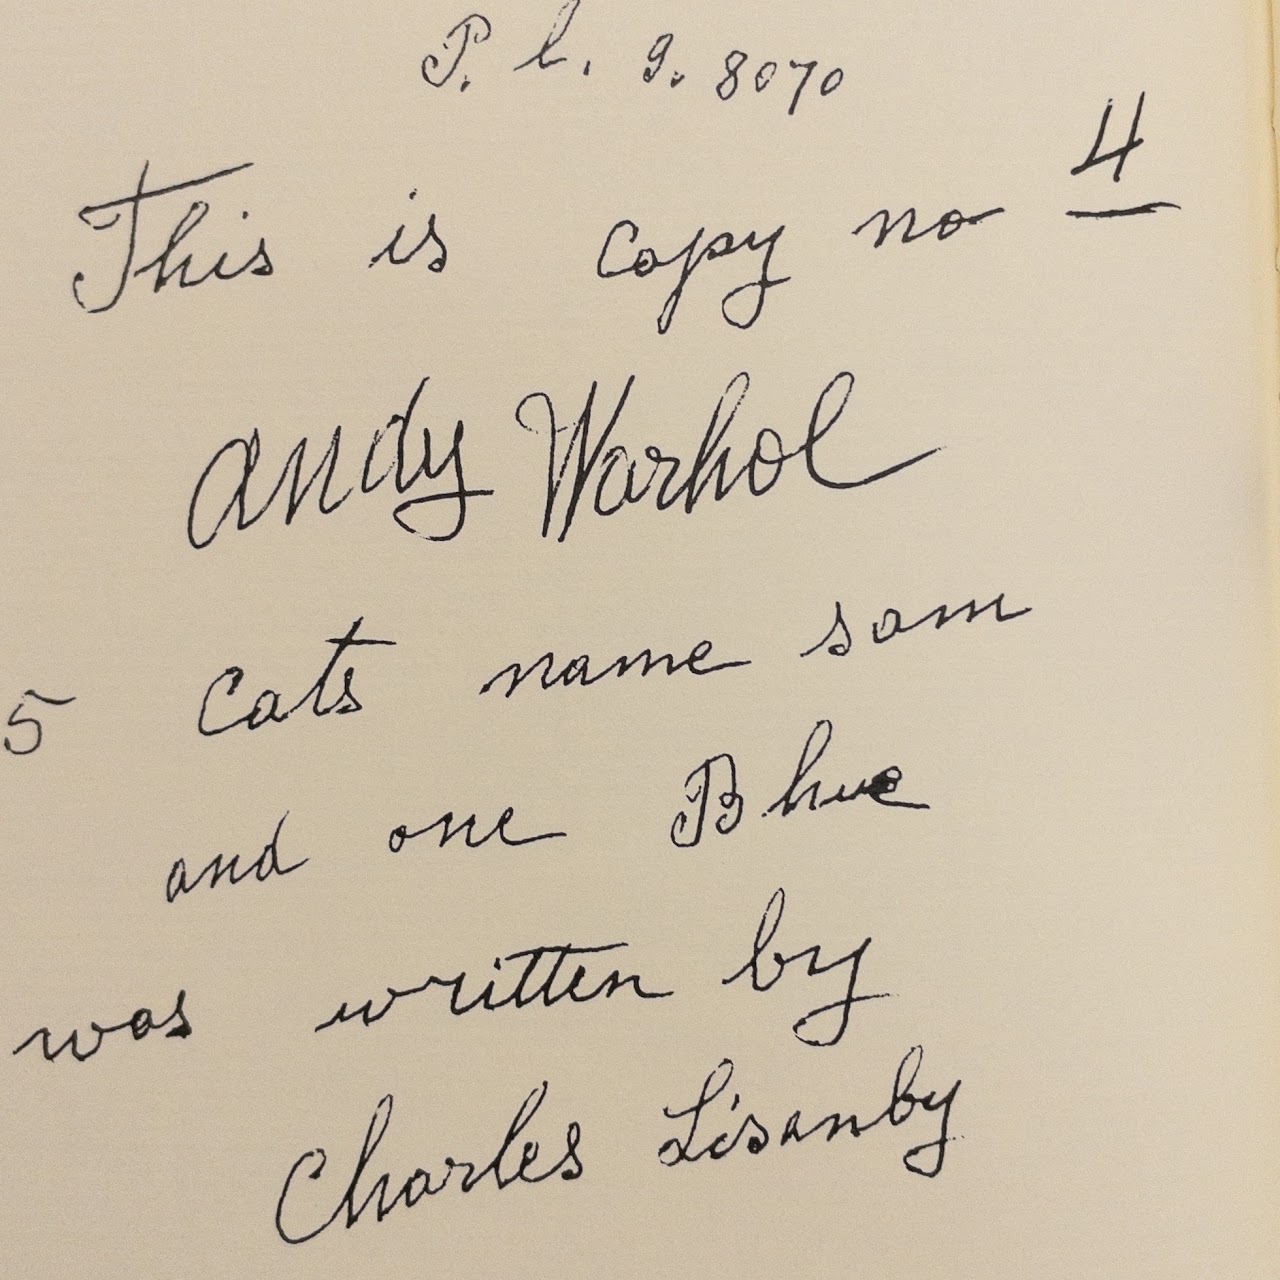 P. l. 9. 8070
This is copy no 4
Andy Warhol
5 Cats name sam
and one Blue
was written by
Charles Lisanby